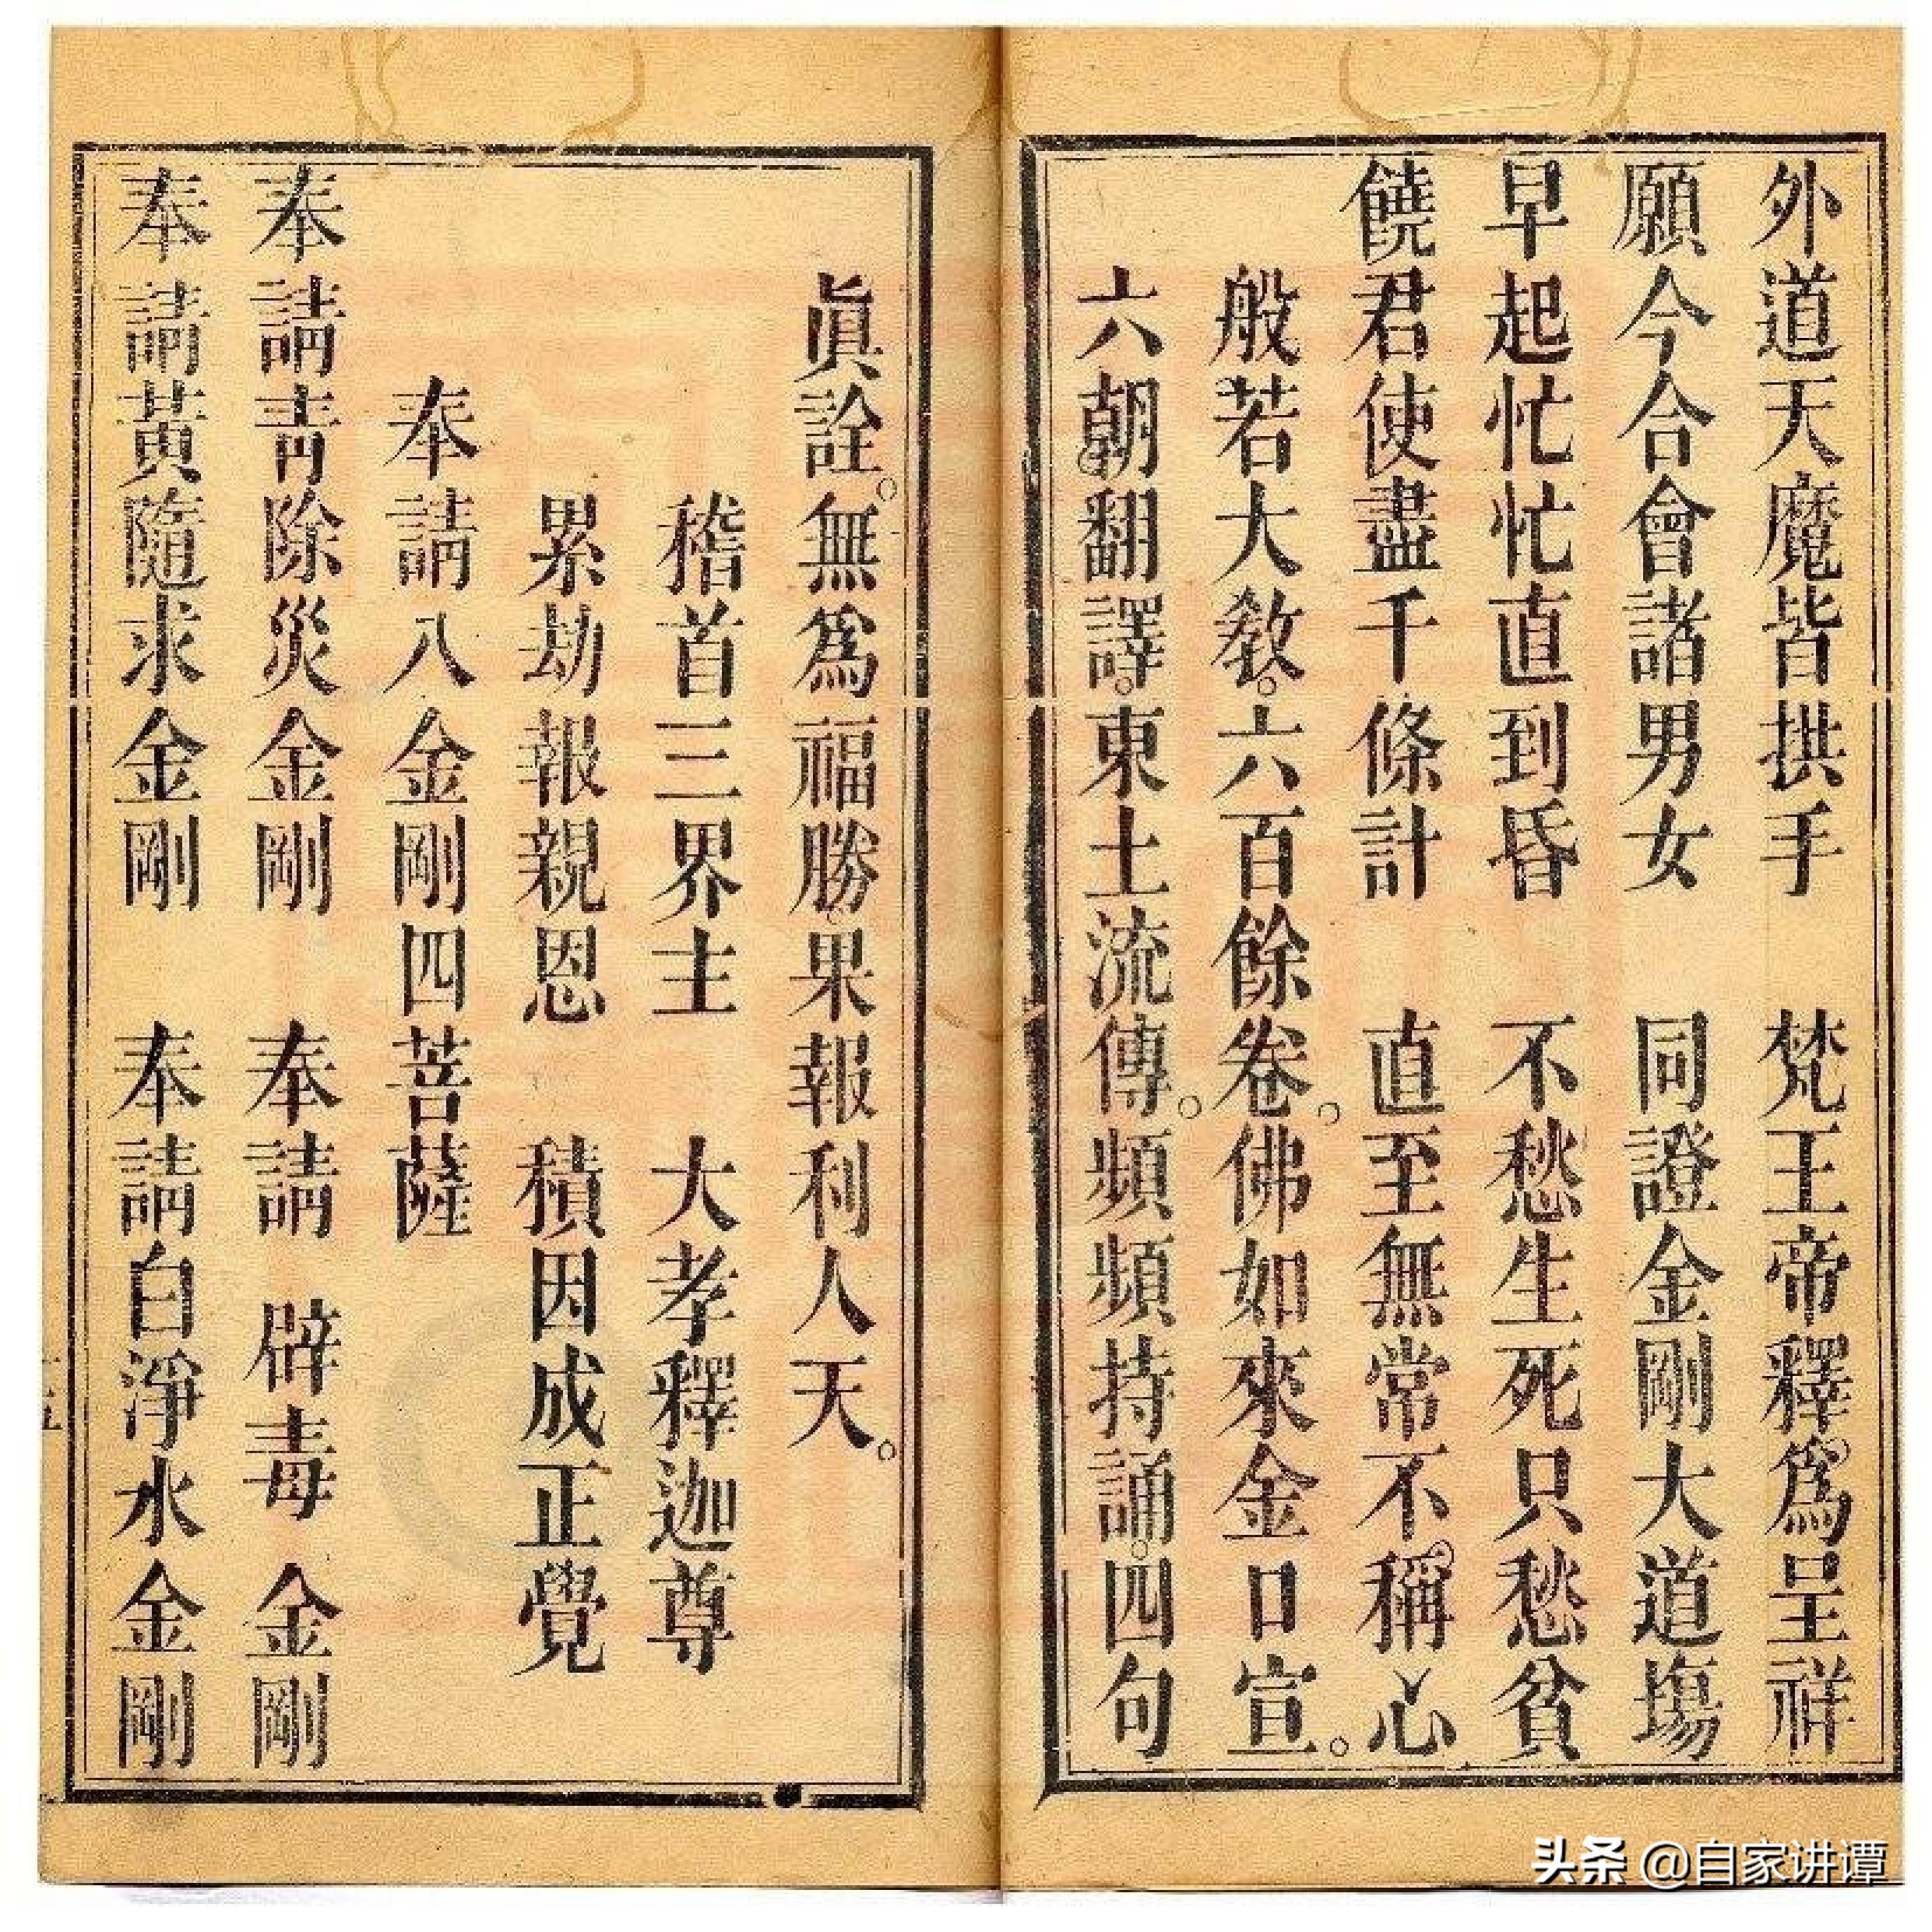 外道天魔皆拱手　梵王帝釋爲呈祥
願今合會諸男女　同證金剛大道塲
早起忙忙直到昏　不愁生死只愁貧
饒君使盡千條計　直至無常不稱心
般若大敎。六百餘卷。佛如來金口宣。
六朝翻譯。東土流傳。頻頻持誦。四句
眞詮。無爲福勝。果報利人天。
稽首三界主　大孝釋迦尊
累劫報親恩　積因成正覺
奉請八金剛四菩薩
奉請靑除災金剛　奉請辟毒金剛
奉請黃隨求金剛　奉請白淨水金剛
头条 @自家讲谭